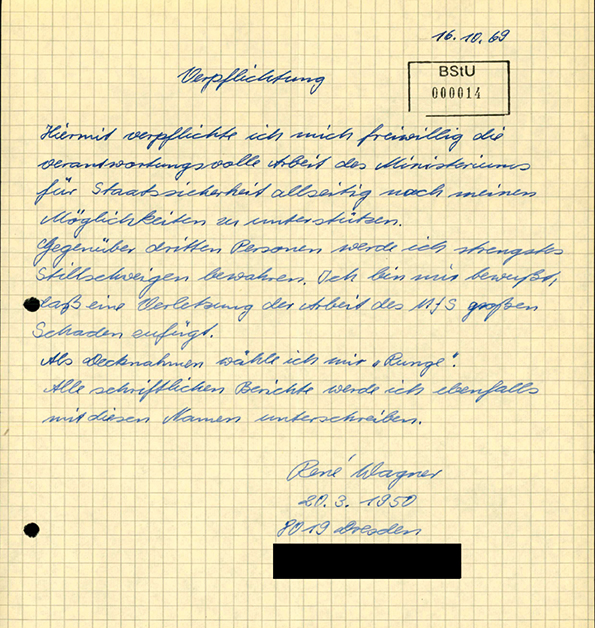 16.10.69
BStU
000014
Verpflichtung
Hiermit verpflichte ich mich freiwillig die
verantwortungsvolle Arbeit des Ministeriums
für Staatssicherheit allseitig nach meinen
Möglichkeiten zu unterstützen.
Gegenüber dritten Personen werde ich strengstes
Stillschweigen bewahren. Ich bin mir bewußt,
daß eine Verletzung der Arbeit des MfS großen
Schaden zufügt.
Als Decknahmen wähle ich mir „Runge".
Alle schriftlichen Berichte werde ich ebenfalls
mit diesen Namen unterschreiben.
René Wagner
20.3.1950
8019 Dresden